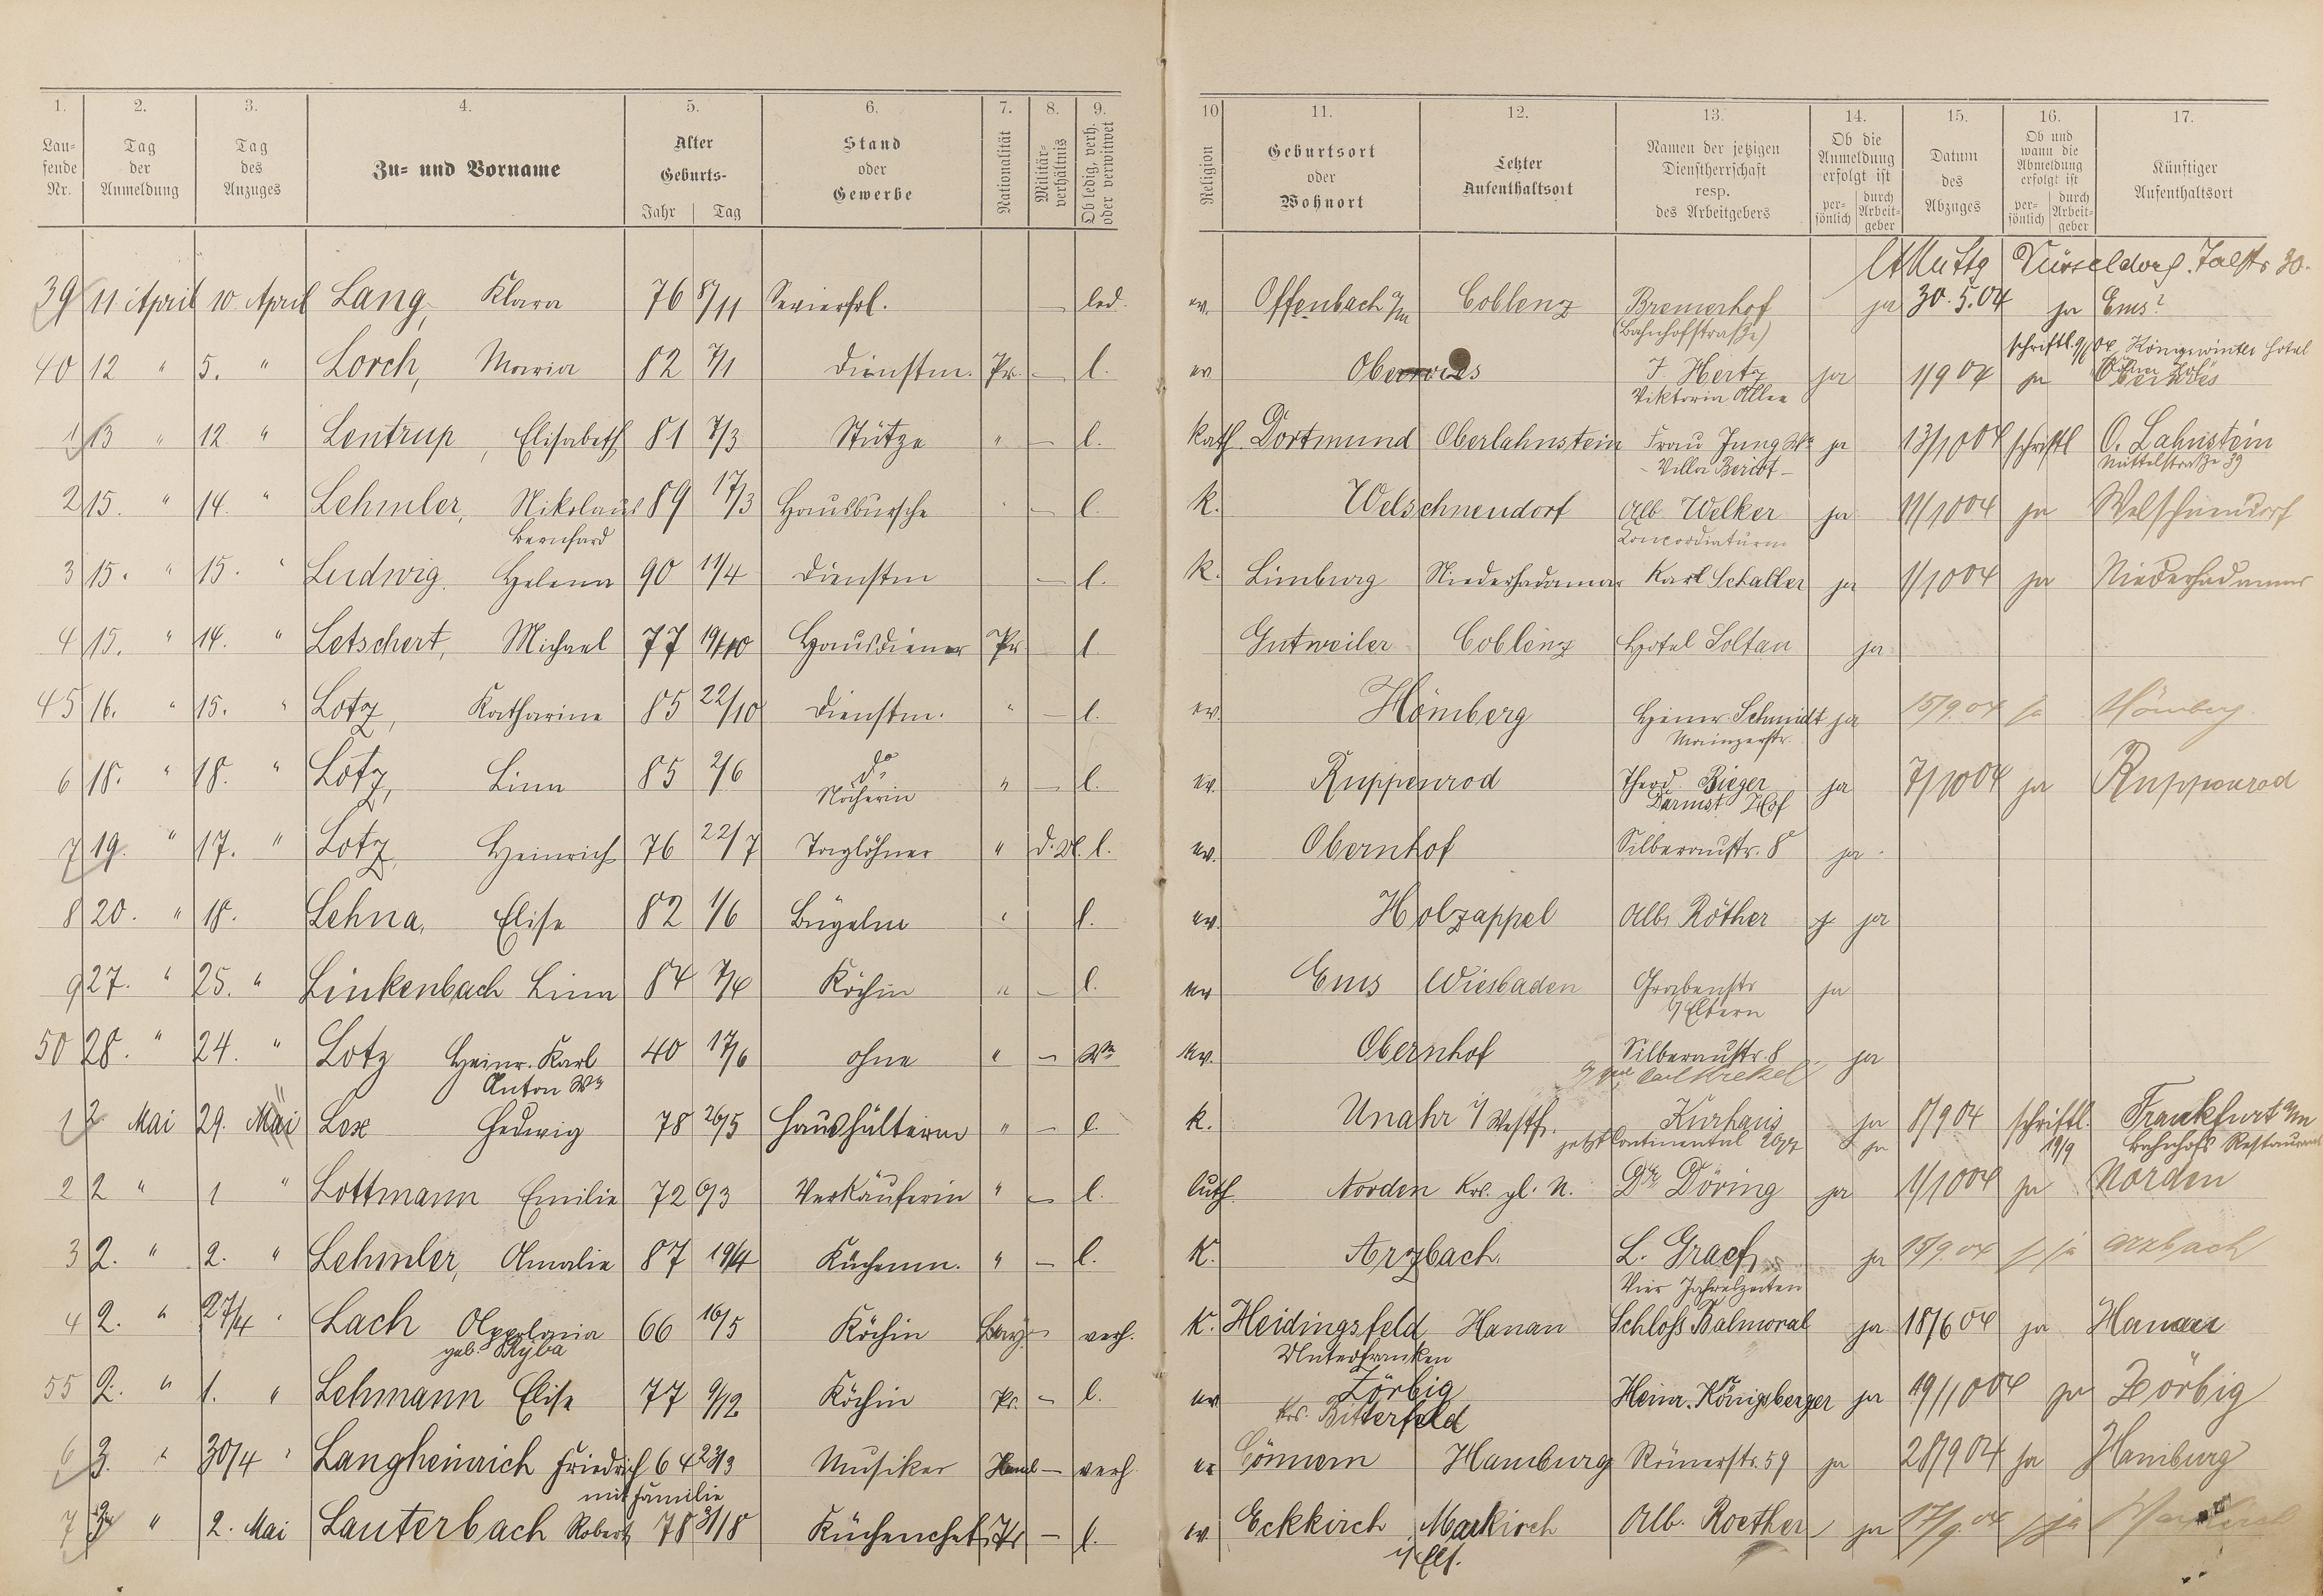 1. 2. 3. 4. 5. 6. 7. 8. 9. 10 11. 12. 13. 14. 15. 16. 17.
Laufende Nr. Tag der Anmeldung Tag des Anzuges Zu- und Vorname Alter Geburts- Jahr Tag Stand oder Gewerbe Nationalität Militärverhältnis Ob ledig, verh. oder verwitwet Religion Geburtsort oder Wohnort Letzter Aufenthaltsort Namen der jetzigen Dienstherrschaft resp. des Arbeitgebers Ob die Anmeldung erfolgt ist persönlich durch Arbeitgeber Datum des Abzuges Ob und wann die Abmeldung erfolgt ist persönlich durch Arbeitgeber Künftiger Aufenthaltsort
Düsseldorf. Talstr 30.
39 11 April 10 April Lang, Klara 76 8/11 Servierfrl. — led. ev. Offenbach a/m Coblenz Bremerhof ja 30.5.04 ja Ems?
(Bahnhofstraße)
schriftl. 9/6 04 Königswinter Hotel
40 12 " 5. " Lorch, Maria 82 7/1 Dienstm. Pr. — l. ev J Hertz ja 1/9 04 ja
Viktoria Allee
1 13 " 12 " Lentrup, Elisabeth 81 7/3 Stütze " — l. kath. Dortmund Oberlahnstein Frau Jung Ww ja 13/10 04 schriftl O. Lahnstein
Mittelstraße 39
2 15. " 14. " Lehmler, Nikolaus 89 17/3 Hausbursche — l. k. Welschneudorf Alb Welker ja 11/10 04 ja Welschneudorf
Bernhard Concordiaturm
3 15. " 15. " Ludwig. Helena 90 11/4 Dienstm — l. k. Limburg Niederhadamar Karl Schaller ja 1/10 04 ja Niederhadamar
4 15. " 14. " Letschert, Michael 77 19/10 Hausdiener Pr l. Gutweiler Coblenz Hotel Soltau ja
45 16. " 15. " Lotz, Katharine 85 22/10 Dienstm. " — l. ev. Hömberg Heinr. Schmidt ja 15/9.04 ja Hömberg
Mainzerstr.
6 18. " 18. " Lotz, Lina 85 2/6 do " — l. ev. Ruppenrod Theod. Rieger ja 7/10 04 ja Ruppenrod
Näherin Darmst. Hof
7 19. " 17. " Lotz, Heinrich 76 22/7 Taglöhner " l. ev. Obernhof Silberaustr. 8 ja
8 20. " 18. Lehna, Elise 82 1/6 Bügelm " l. ev. Holzappel Alb. Röther ja
9 27. " 25. " Linkenbach Lina 84 7/4 Köchin " — l. ev Ems Wiesbaden Grabenstr ja
b/Eltern
50 28. " 24. " Lotz Heinr. Karl 40 17/6 ohne " — Ww ev. Obernhof Silberaustr. 8 ja
Anton Ww Carl Krekel
1 2 Mai 29. Mai Lex Hedwig 78 26/5 Haushälterin " — l. k. Unahr i/ Westf. Kurhaus ja 8/9 04 schriftl. Frankfurt a/m
jetzt Continental ja 19/9 Bahnhofs Restaurant
2 2 " 1 " Lottmann Emilie 72 6/3 Verkäuferin " — l. luth. Norden Krs. gl. N. Döring ja 1/10 04 ja Norden
3 2. " 2. " Lehmler, Amalie 87 19/4 Küchenm. " — l. K. Arzbach. L. Graef ja 15/9.04 ja Arzbach
Vier Jahreszeiten
4 2. " 27/4 " Lach Appolonia 66 16/5 Köchin Bay. — verh. K. Heidingsfeld Hanau Schloß Balmoral ja 18/6 04 ja Hanau
geb. Ryba Unterfranken
55 2. " 1. " Lehmann Elise 77 9/12 Köchin Pr. — l. ev Zörbig Heinr. Königsberger ja 19/10 04 ja Zörbig
Krs. Bitterfeld
6 3. " 30/4 " Langheinrich Friedrich 64 23/3 Musiker — verh. ev Cönnern Hamburg Römerstr. 59 ja 28/9 04 ja Hamburg
mit Familie
7 3 " 2. Mai Lauterbach Robert 78 Küchenchef Pr — l. ev Eckkirch Markirch Alb. Roether ja 17/9.04 ja
i/ Els.